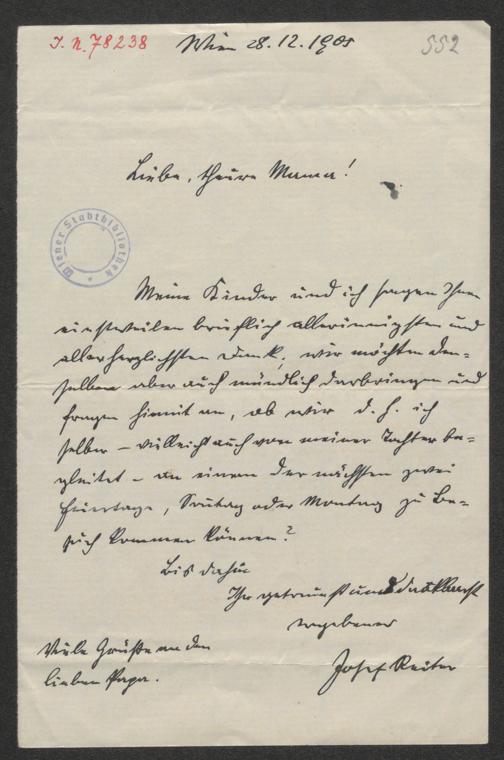 I. N. 78238
Wien 28.12.1901
552
Liebe, theure Mama!
Wiener Stadtbibliothek
Meine Kinder und ich sagen Ihnen
einstweilen brieflich allerinnigsten und
allerherzlichsten Dank, wir möchten den-
selben aber auch mündlich darbringen und
fragen hiemit an, ob wir d. h. ich
selber – vielleicht auch von meiner Tochter be-
gleitet – an einem der nächsten zwei
Feiertage, Sontag oder Montag zu Be-
such kommen können?
Bis dahin
Ihr getreuest und dankbarst
ergebener
Josef Reiter
Viele Grüße an den
lieben Papa.